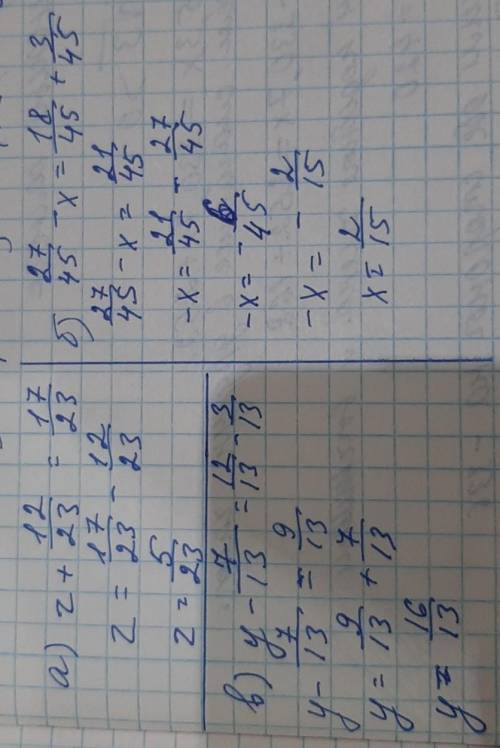 а) z + 12/23 = 17/23
z = 17/23 - 12/23
z = 5/23
б) 27/45 - x = 18/45 + 3/45
27/45 - x = 21/45
-x = 21/45 - 27/45
-x = - 6/45
-x = - 2/15
x = 2/15
в) y - 7/13 = 12/13 - 3/13
y - 7/13 = 9/13
y = 9/13 + 7/13
y = 16/13